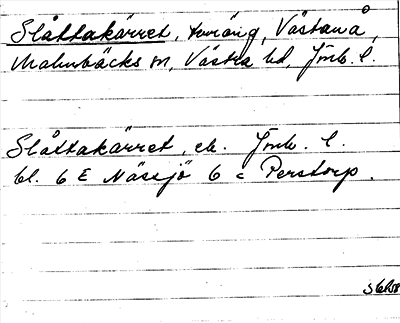 Slåttakärret, terräng, Västanå,
Malmbäcks sn, Västra hd, Jönk. l.
Slåttakärret, ek. Jönk. l.
bl. 6 E Nässjö 6 c Perstorp.